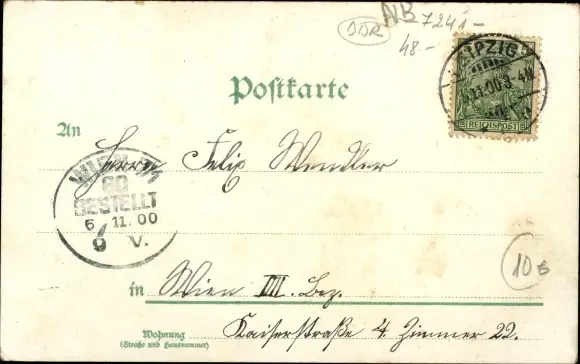 NB 7241-
DDR
48.-
LEIPZIG
.11.00.3-4N
REICHSPOST
Postkarte
An
Herrn Felix Wendler
WIEN
BESTELLT
6 11. 00
9 V.
10
in Wien VIII. Bez.
Wohnung
(Straße und Hausnummer)
Kaiserstraße 4. Zimmer 22.